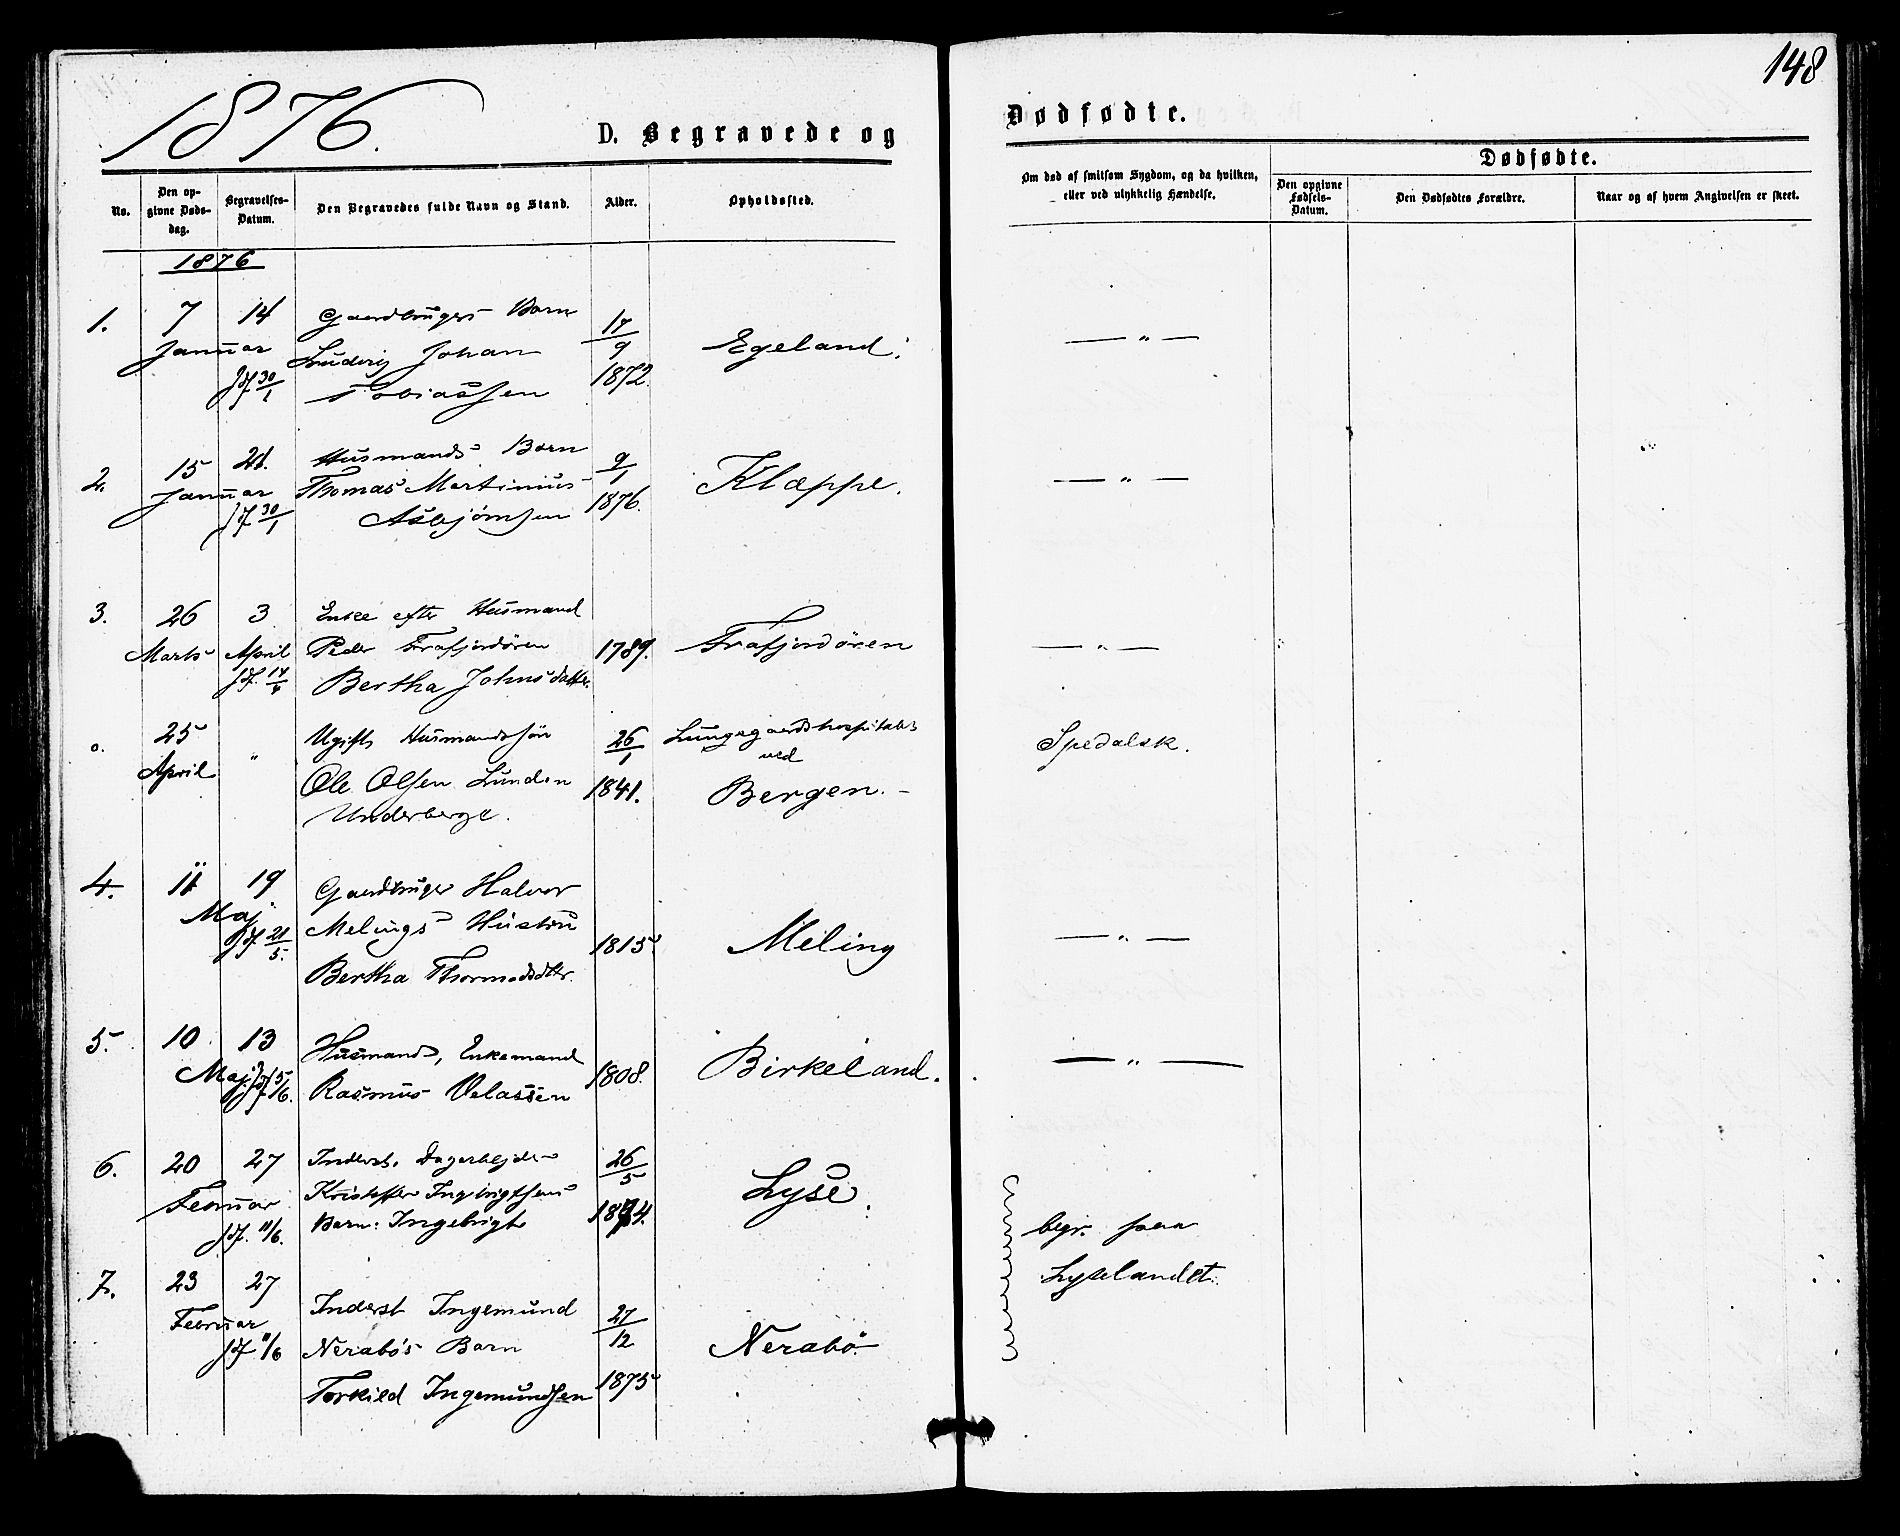 148
1876.
D. Begravede og
Dødfødte.
No.
Den op-
givne Døds-
dag.
Begravelses-
Datum.
Den Begravedes fulde Navn og Stand.
Alder.
Opholdssted.
Om død af smitsom Sygdom, og da hvilken,
eller ved ulykkelig Hændelse.
Dødfødte.
Den opgivne
Fødsels-
Datum.
Den Dødfødtes Forældre.
Naar og af hvem Angivelsen er skeet.
1876
1.
7 14
Januar
Jdf 30/1
Gaardbrugers Barn
Ludvig Johan
Tobiassen
17/9
1872.
Egeland.
— " —
2.
15 21.
Januar
Jdf 30/1
Husmands Barn
Thomas Martinius
Asbjørnsen
9/1
1876.
Klæppe.
— " —
3.
26 3
Marts April
Jdf. 17/4
Enke efter Husmand
Peder Frafjordøren
Bertha Johnsdatter
1789.
Frafjordøren
— " —
o.
25 "
April
Ugift Husmandssøn
Ole Olsen Lunden
Underberge.
26/1
1841.
Lungegaardshospitalet
ved
Bergen. -
Spedalsk.
4.
11 19
Maj
Jdf 21/5.
Gaardbruger Halvor
Melings Hustru
Bertha Thormodsdtr.
1815.
Meling
— " —
5.
10 13
Maj. Jdf 5/6.
Husmand, Enkemand
Rasmus Velassen
1808.
Birkeland.
— " —
6.
20 27
Februar
Jdf. 11/6.
Inderst. Dagarbejder
Kristoffer Ingebrigtsens
Barn: Ingebrigt
26/5
1874.
Lyse.
begr. paa
Lyselandet.
7.
23 27
Februar
Jdf. 11/6
Inderst Ingemund
Nerabø's Barn
Torkild Ingemundsen
27/12
1875
Nerabø